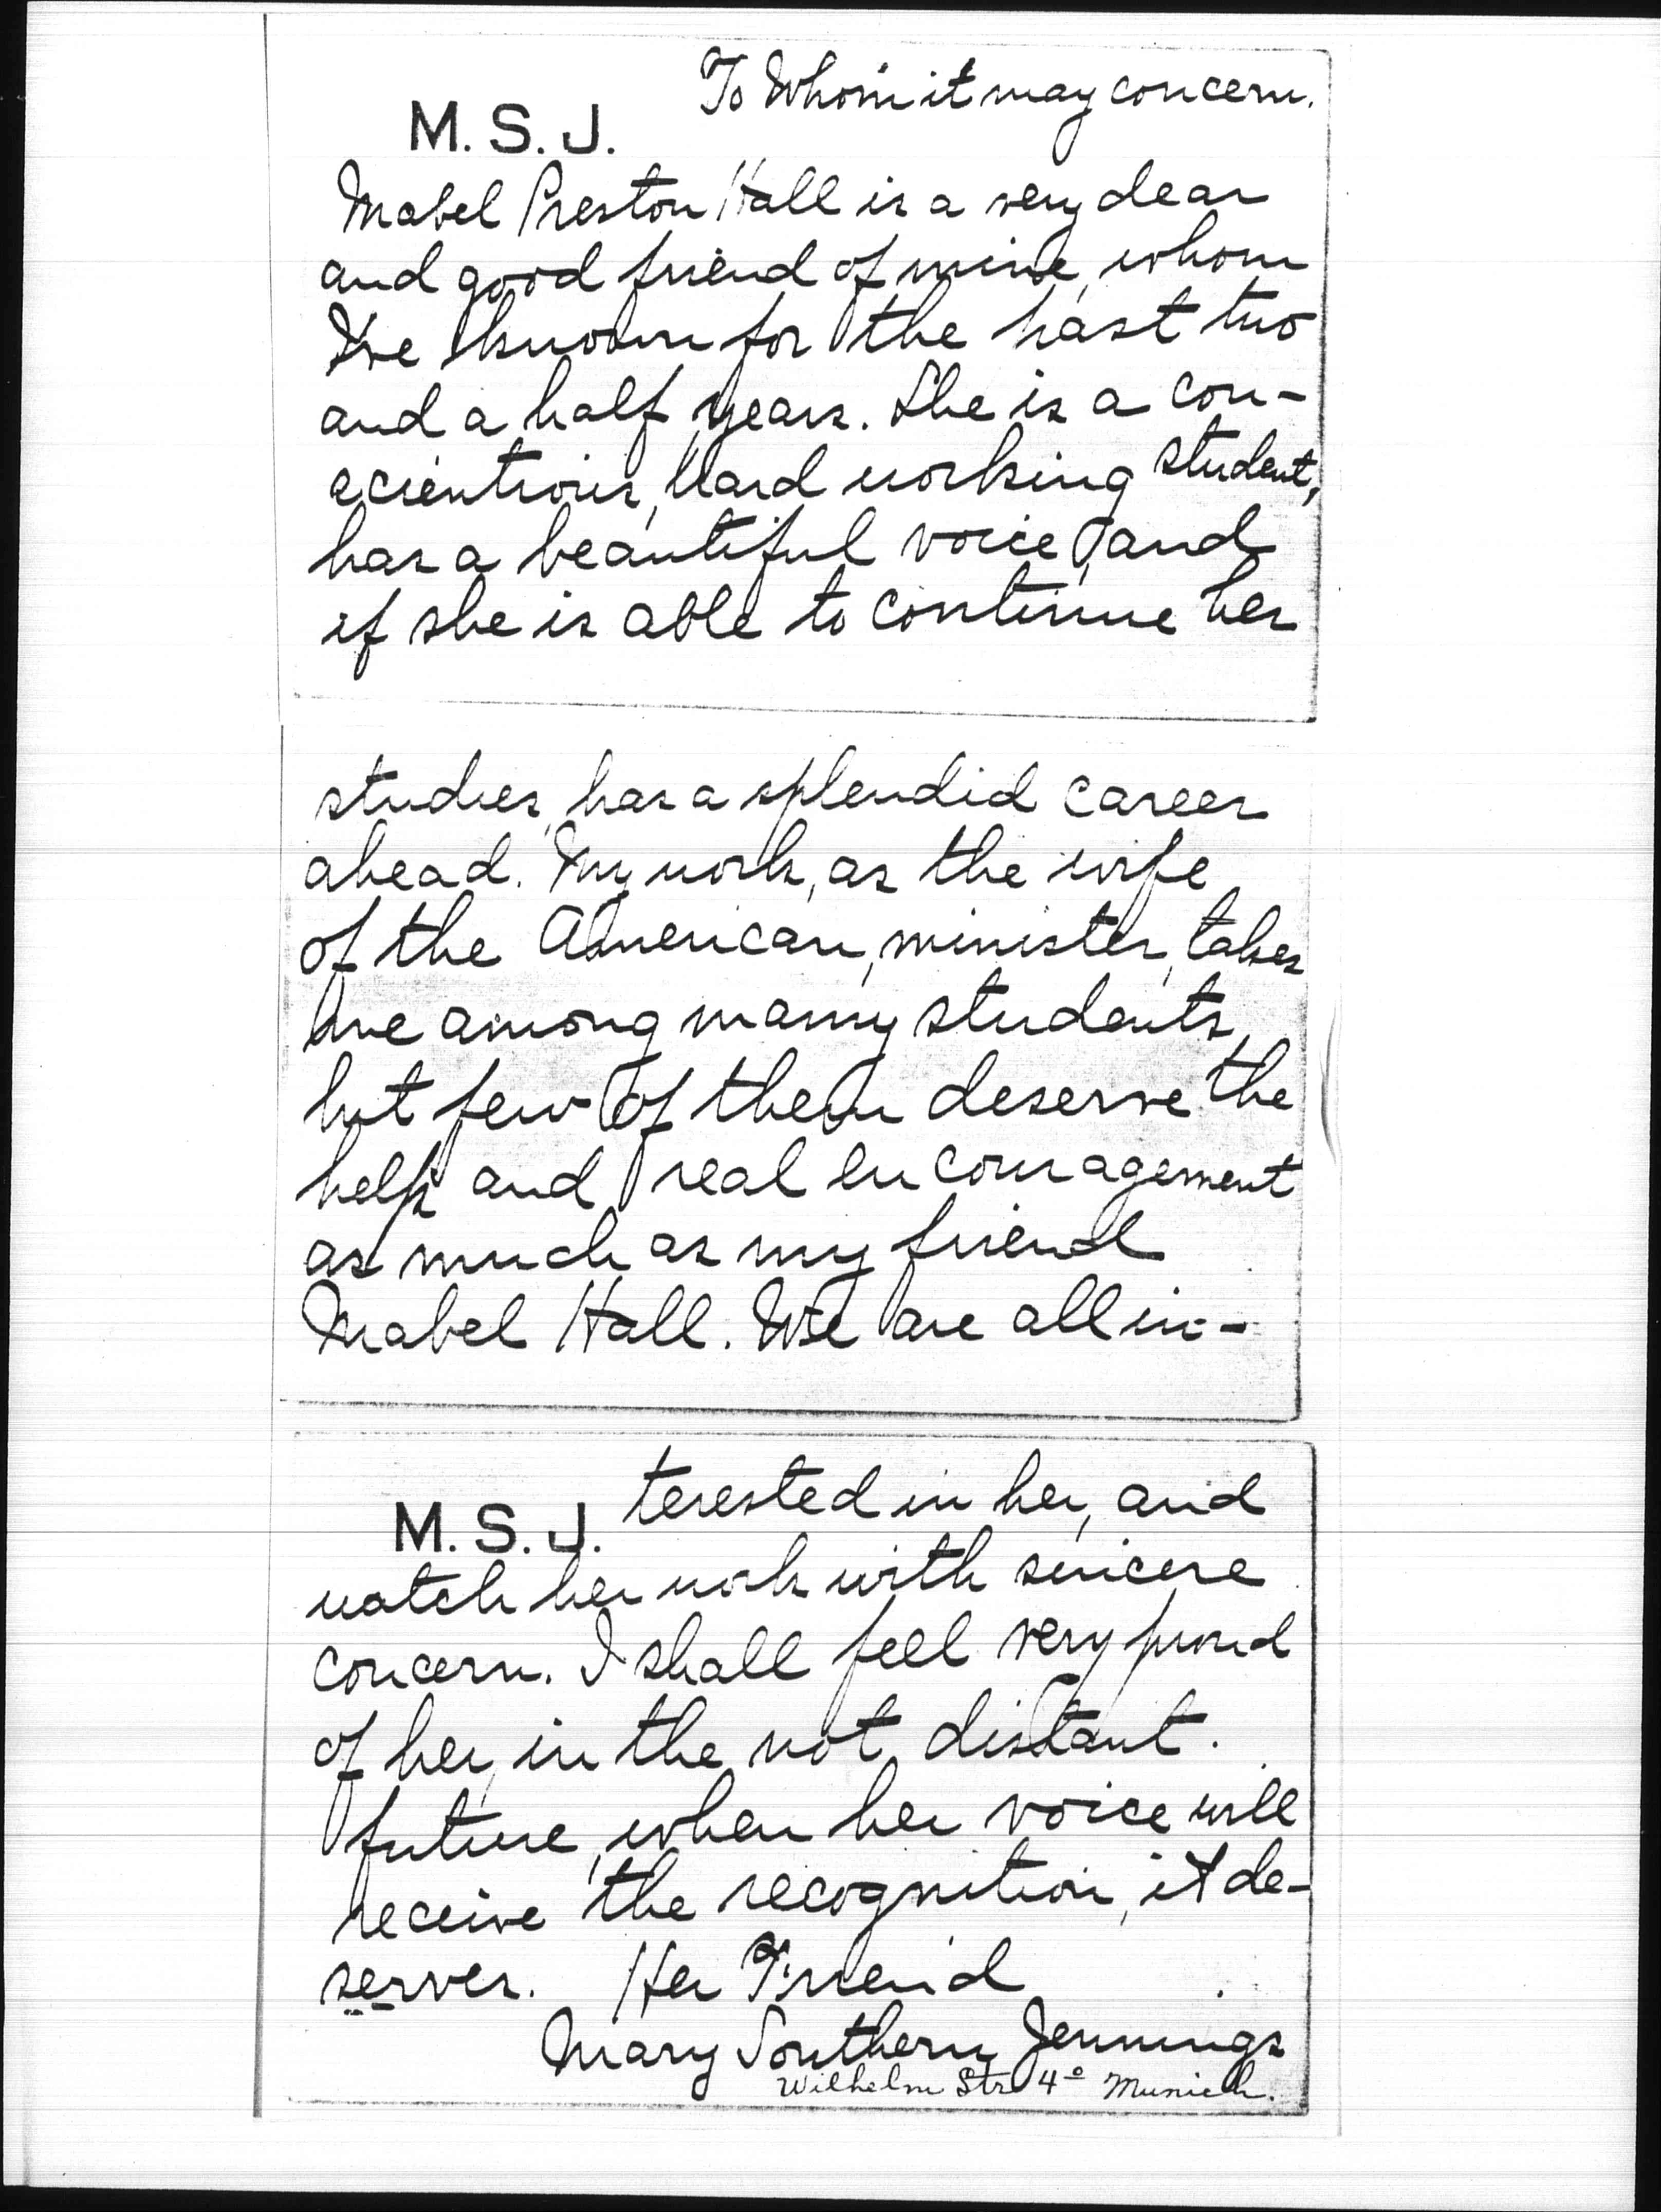 To Whom it may concern.
M. S. J.
Mabel Preston Hall is a very dear
and good friend of mine, whom
I've known for the past two
and a half years. She is a con-
scientious, hard working student,
has a beautiful voice, and
if she is able to continue her
studies, has a splendid career
ahead. My work, as the wife
of the American, minister, takes
me among many students,
but few of them deserve the
help and real encouragement
as much as my friend
Mabel Hall. We are all in-
terested in her, and
M. S. J.
watch her work with sincere
concern. I shall feel very proud
of her, in the not distant
future, when her voice will
receive the recognition, it de-
serves. Her Friend
Mary Southern Jennings
Wilhelm Str 4º Munich.